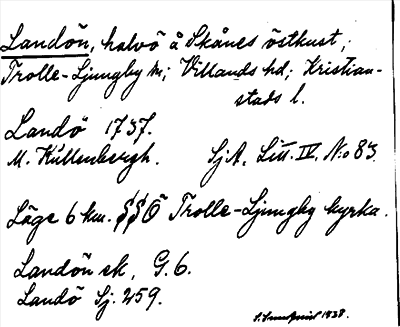 Landön, halvö å Skånes östkust;
Trolle-Ljungby sn; Villands hd; Kristian-
stads l.
Landö 1737.
M. Kullenbergh. SjA. Litt. IV. N:o 83.
Läge 6 km. SSÖ Trolle-Ljungby kyrka.
Landön ek, G.6.
Landö Sj. 259.
1938.